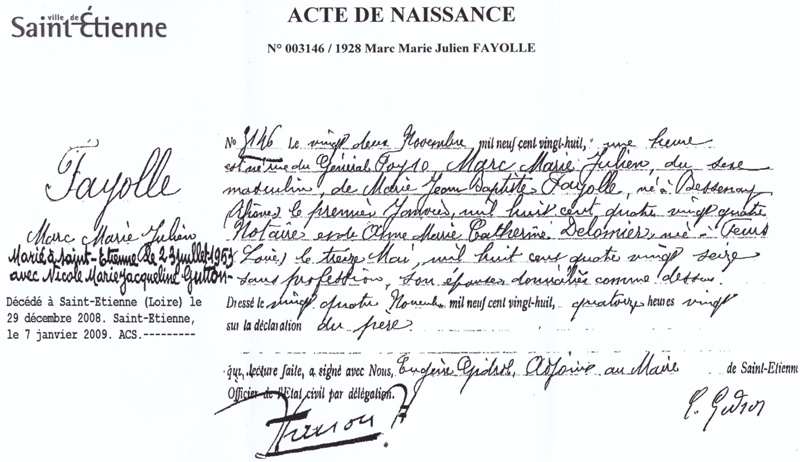 ville de
Saint-Étienne
ACTE DE NAISSANCE
N° 003146 / 1928 Marc Marie Julien FAYOLLE
Fayolle
Marc Marie Julien
Marié à Saint-Etienne le 23 juillet 1953
avec Nicole Marie Jacqueline Gutton-
Décédé à Saint-Etienne (Loire) le
29 décembre 2008. Saint-Etienne,
le 7 janvier 2009. ACS.---------
No 3146 Le vingt deux Novembre, mil neuf cent vingt-huit, une heure
est né rue du Général Foy Marc Marie Julien, du sexe
masculin, de Marie Jean Baptiste Fayolle, né à Bessenay
Rhône le premier Janvier, mil huit cent quatre vingt quatre
Notaire et de Anne Marie Catherine Delomier, née à Feurs
Loire le treize Mai, mil huit cent quatre vingt seize
sans profession, son épouse domiciliés comme dessus.
Dressé le vingt quatre Novembre mil neuf cent vingt-huit, quatorze heures vingt
sur la déclaration du père.
qui, lecture faite, a signé avec Nous, Eugène Gidrol, Adjoint au Maire de Saint-Etienne
Officier de l'Etat civil par délégation.